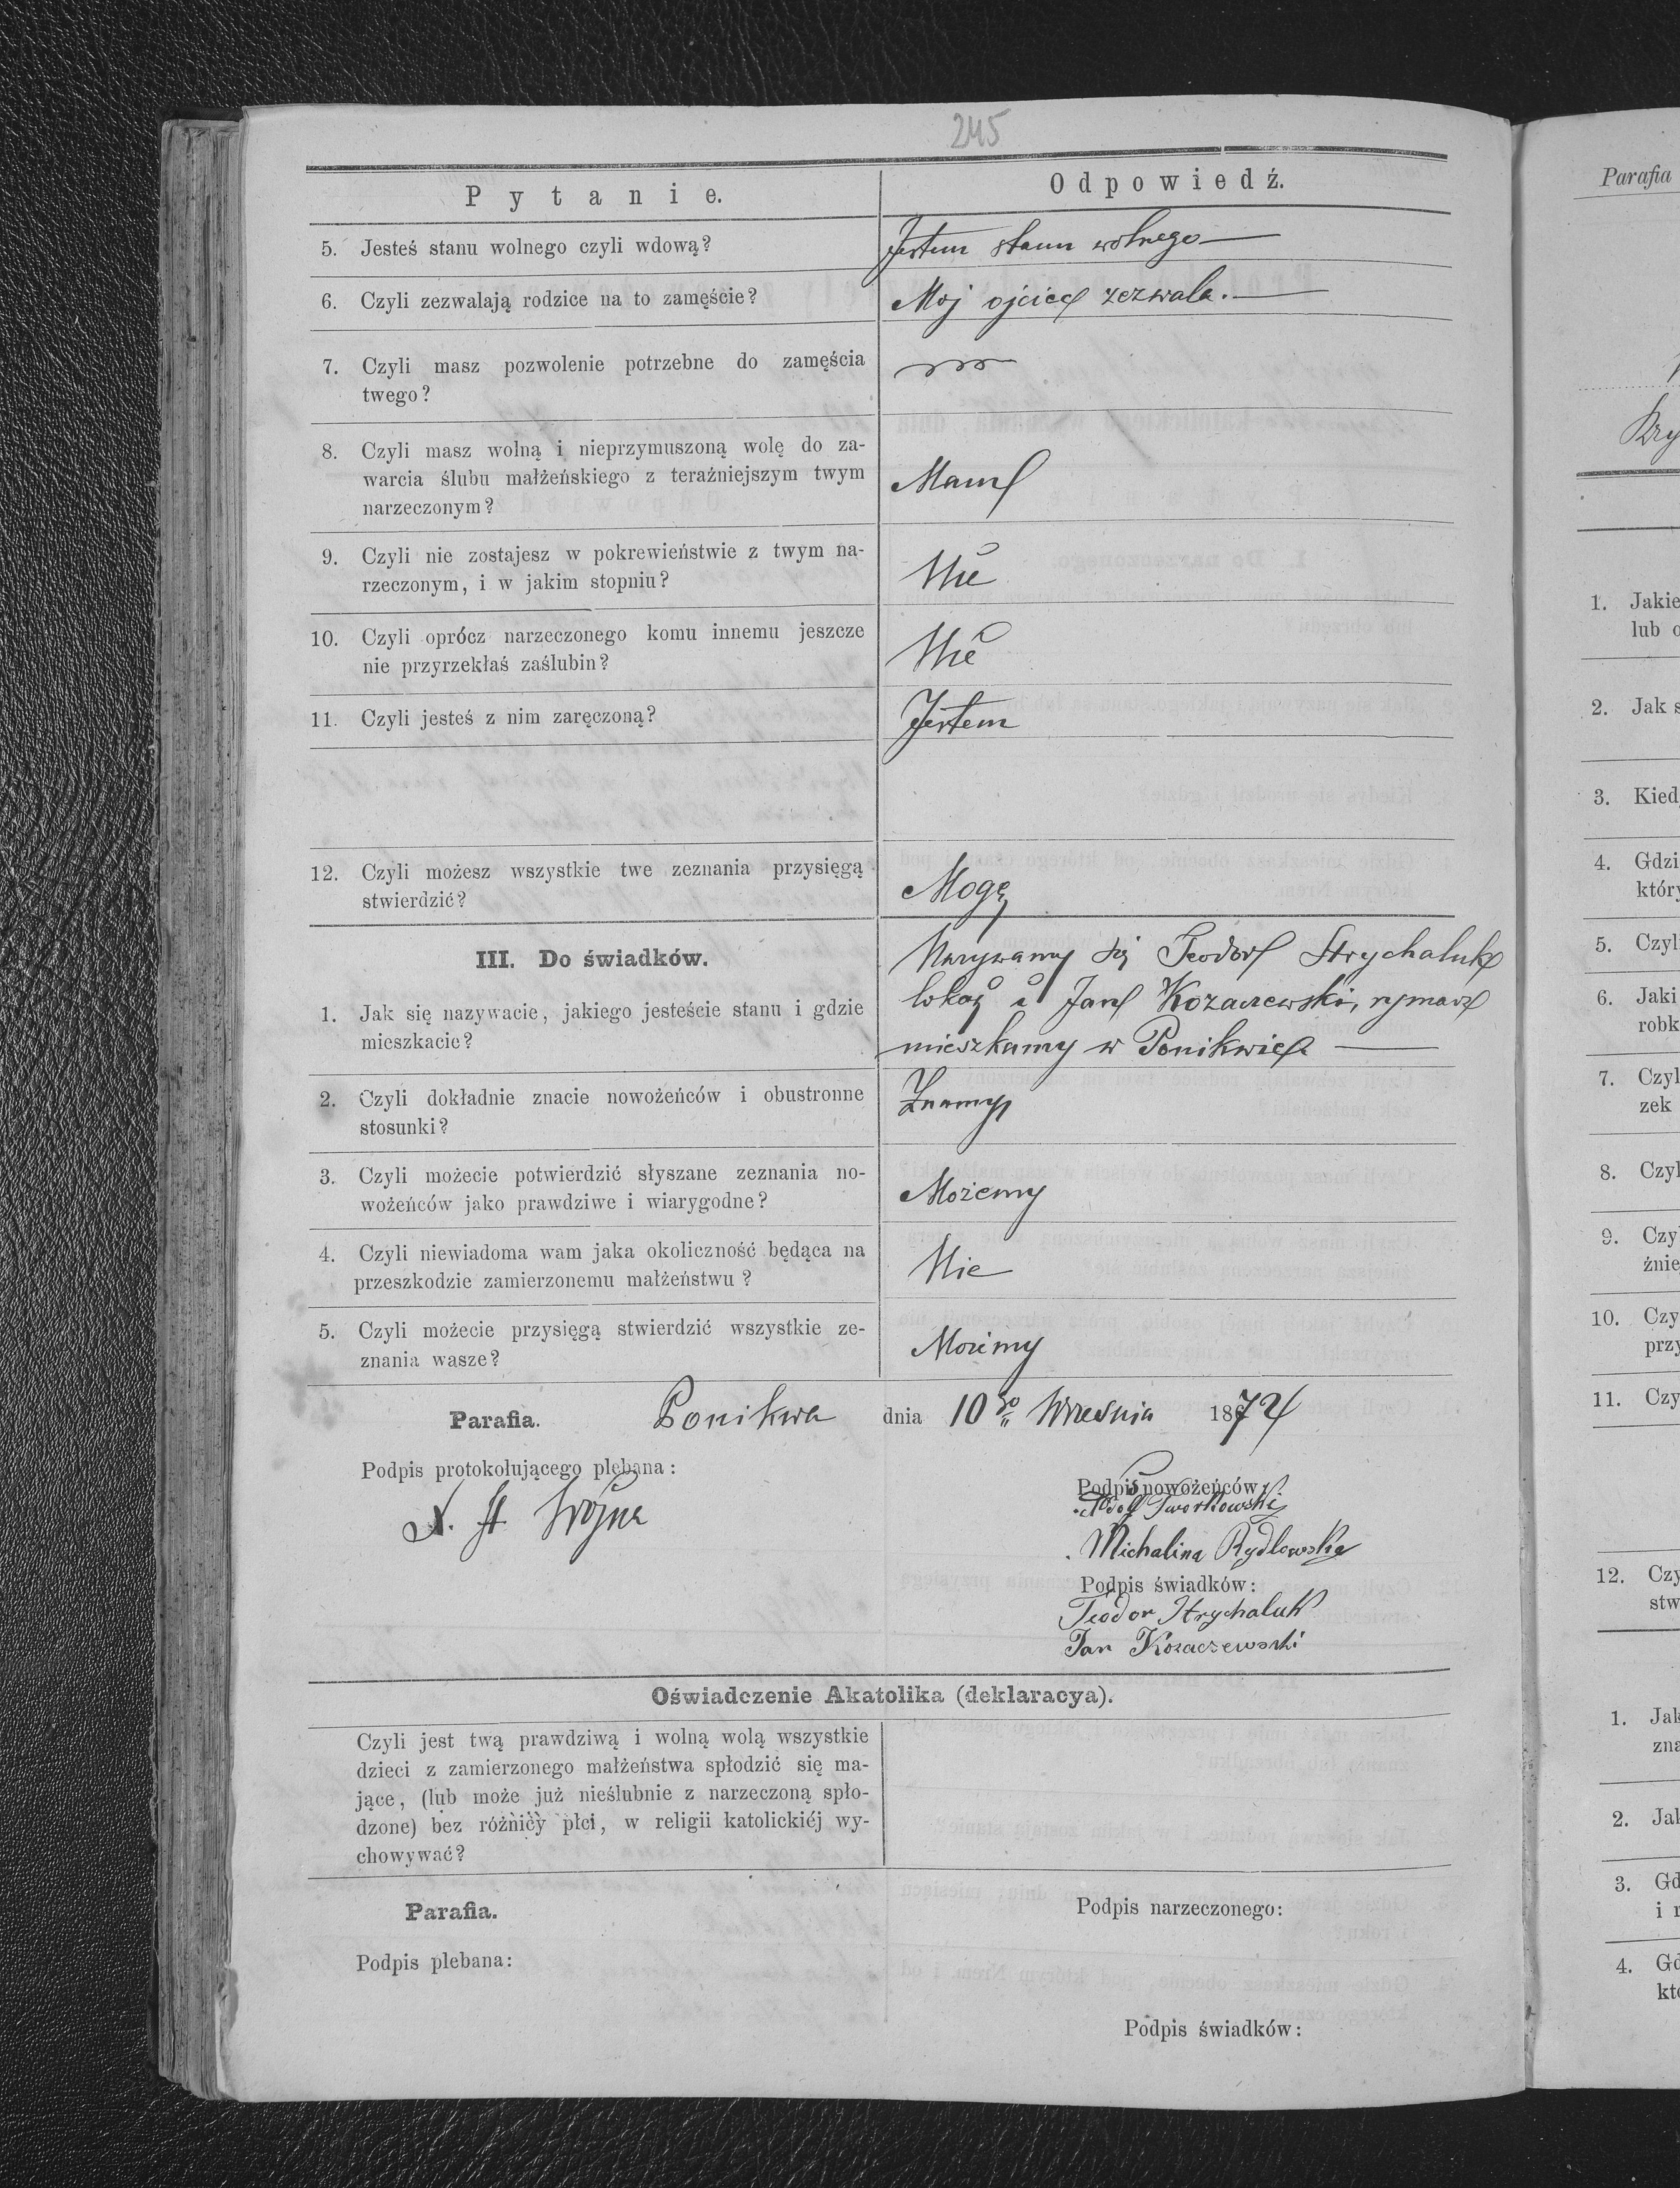 245
Pytanie.
Odpowiedź.
5. Jesteś stanu wolnego czyli wdową?
Jestem stanu wolnego —
6. Czyli zezwalają rodzice na to zamęście?
Moj ojciec zezwala. —
7. Czyli masz pozwolenie potrzebne do zamęścia
twego?
8. Czyli masz wolną i nieprzymuszoną wolę do za-
warcia ślubu małżeńskiego z teraźniejszym twym
narzeczonym?
Mam
9. Czyli nie zostajesz w pokrewieństwie z twym na-
rzeczonym, i w jakim stopniu?
Nie
10. Czyli oprócz narzeczonego komu innemu jeszcze
nie przyrzekłaś zaślubin?
Nie
11. Czyli jesteś z nim zaręczoną?
Jestem
12. Czyli możesz wszystkie twe zeznania przysięgą
stwierdzić?
Mogę
III. Do świadków.
1. Jak się nazywacie, jakiego jesteście stanu i gdzie
mieszkacie?
Nazywamy się Teodor Strychaluk
lokaj i Jan Kozaczewski, rymarz
mieszkamy w Ponikwie —
2. Czyli dokładnie znacie nowożeńców i obustronne
stosunki?
Znamy
3. Czyli możecie potwierdzić słyszane zeznania no-
wożeńców jako prawdziwe i wiarygodne?
Możemy
4. Czyli niewiadoma wam jaka okoliczność będąca na
przeszkodzie zamierzonemu małżeństwu?
Nie
5. Czyli możecie przysięgą stwierdzić wszystkie ze-
znania wasze?
Możemy
Parafia. Ponikwa dnia 10go Wrzesnia 1874
Podpis protokołującego plebana:
X. St. Wojna
Podpis nowożeńców:
Adolf Tworkowski
Michalina Rydlowska
Podpis świadków:
Teodor Strychaluk
Jan Kozaczewski
Oświadczenie Akatolika (deklaracya).
Czyli jest twą prawdziwą i wolną wolą wszystkie
dzieci z zamierzonego małżeństwa spłodzić się ma-
jące, (lub może już nieślubnie z narzeczoną spło-
dzone) bez różnicy płci, w religii katolickiéj wy-
chowywać?
Parafia.
Podpis narzeczonego:
Podpis plebana:
Podpis świadków:
Parafia
Kry
1. Jakie
lub o
2. Jak s
3. Kied
4. Gdzi
któr
5. Czyl
6. Jaki
robk
7. Czyl
zek
8. Czyl
9. Czy
źnie
10. Czy
przy
11. Czy
12. Czy
stw
1. Jak
zna
2. Jak
3. Gd
i r
4. Gd
kto